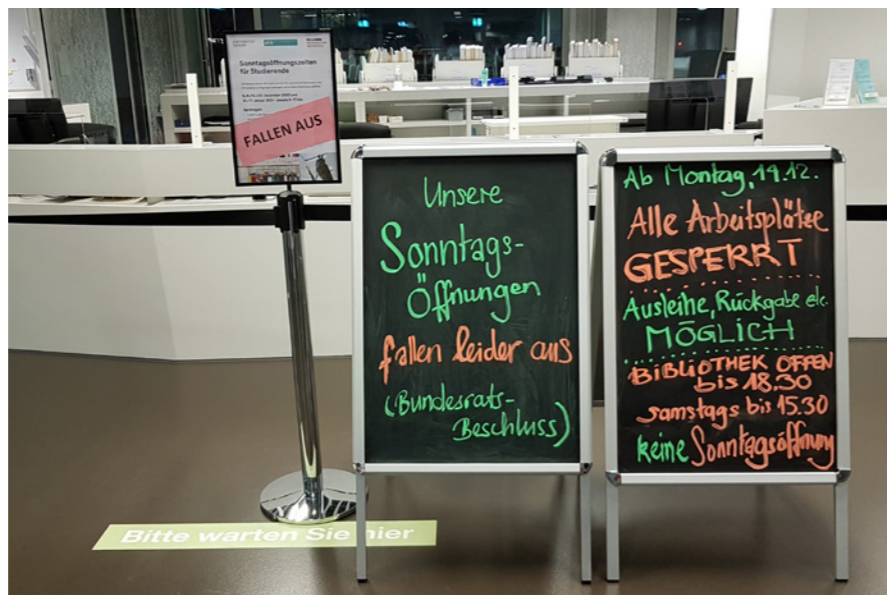 Sonntagsöffnungszeiten
für Studierende
FALLEN AUS
Unsere
Sonntags-
Öffnungen
fallen leider aus
(Bundesrats-
Beschluss)
Ab Montag, 14.12.
Alle Arbeitsplätze
GESPERRT
Ausleihe, Rückgabe etc.
MÖGLICH
BiBLiOTHEK OFFEN
bis 18.30
samstags bis 15.30
keine Sonntagsöffnung
Bitte warten Sie hier